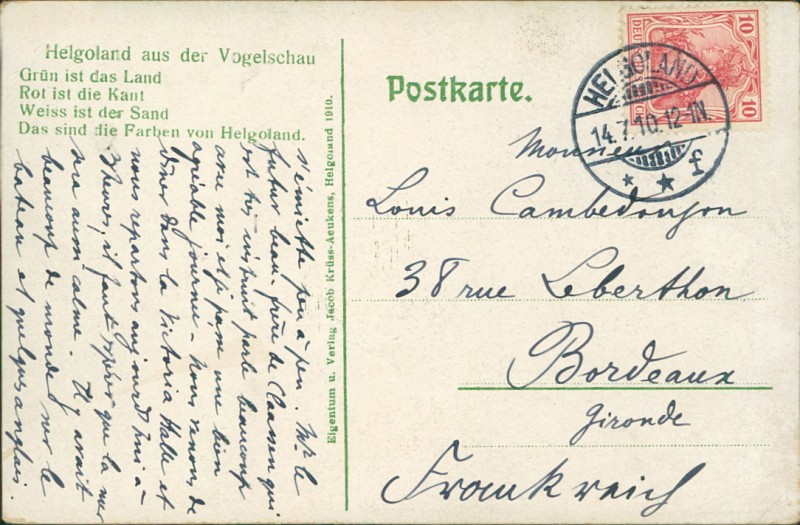 Helgoland aus der Vogelschau
Grün ist das Land
Rot ist die Kant
Weiss ist der Sand
Das sind die Farben von Helgoland.
s'émiette peu à peu. Mr le
futur beau-frère de Claassen qui
est très instruit parle beaucoup
avec moi et je passe une bien
agréable journée - Nous venons de
dîner dans la Victoria Halle et
nous repartons aujourd'hui à
3 heures, il faut espérer que la mer
sera aussi calme. Il y avait
beaucoup de monde sur le
bateau et quelques anglais.
Eigentum u. Verlag Jacob Krüss-Aeukens, Helgoland 1910.
Postkarte.
10 10
HELGOLAND
14.7.10.12-1N.
* * f
Monsieur
Louis Cambedouzon
38 rue Leberthon
Bordeaux
Gironde
Frankreich